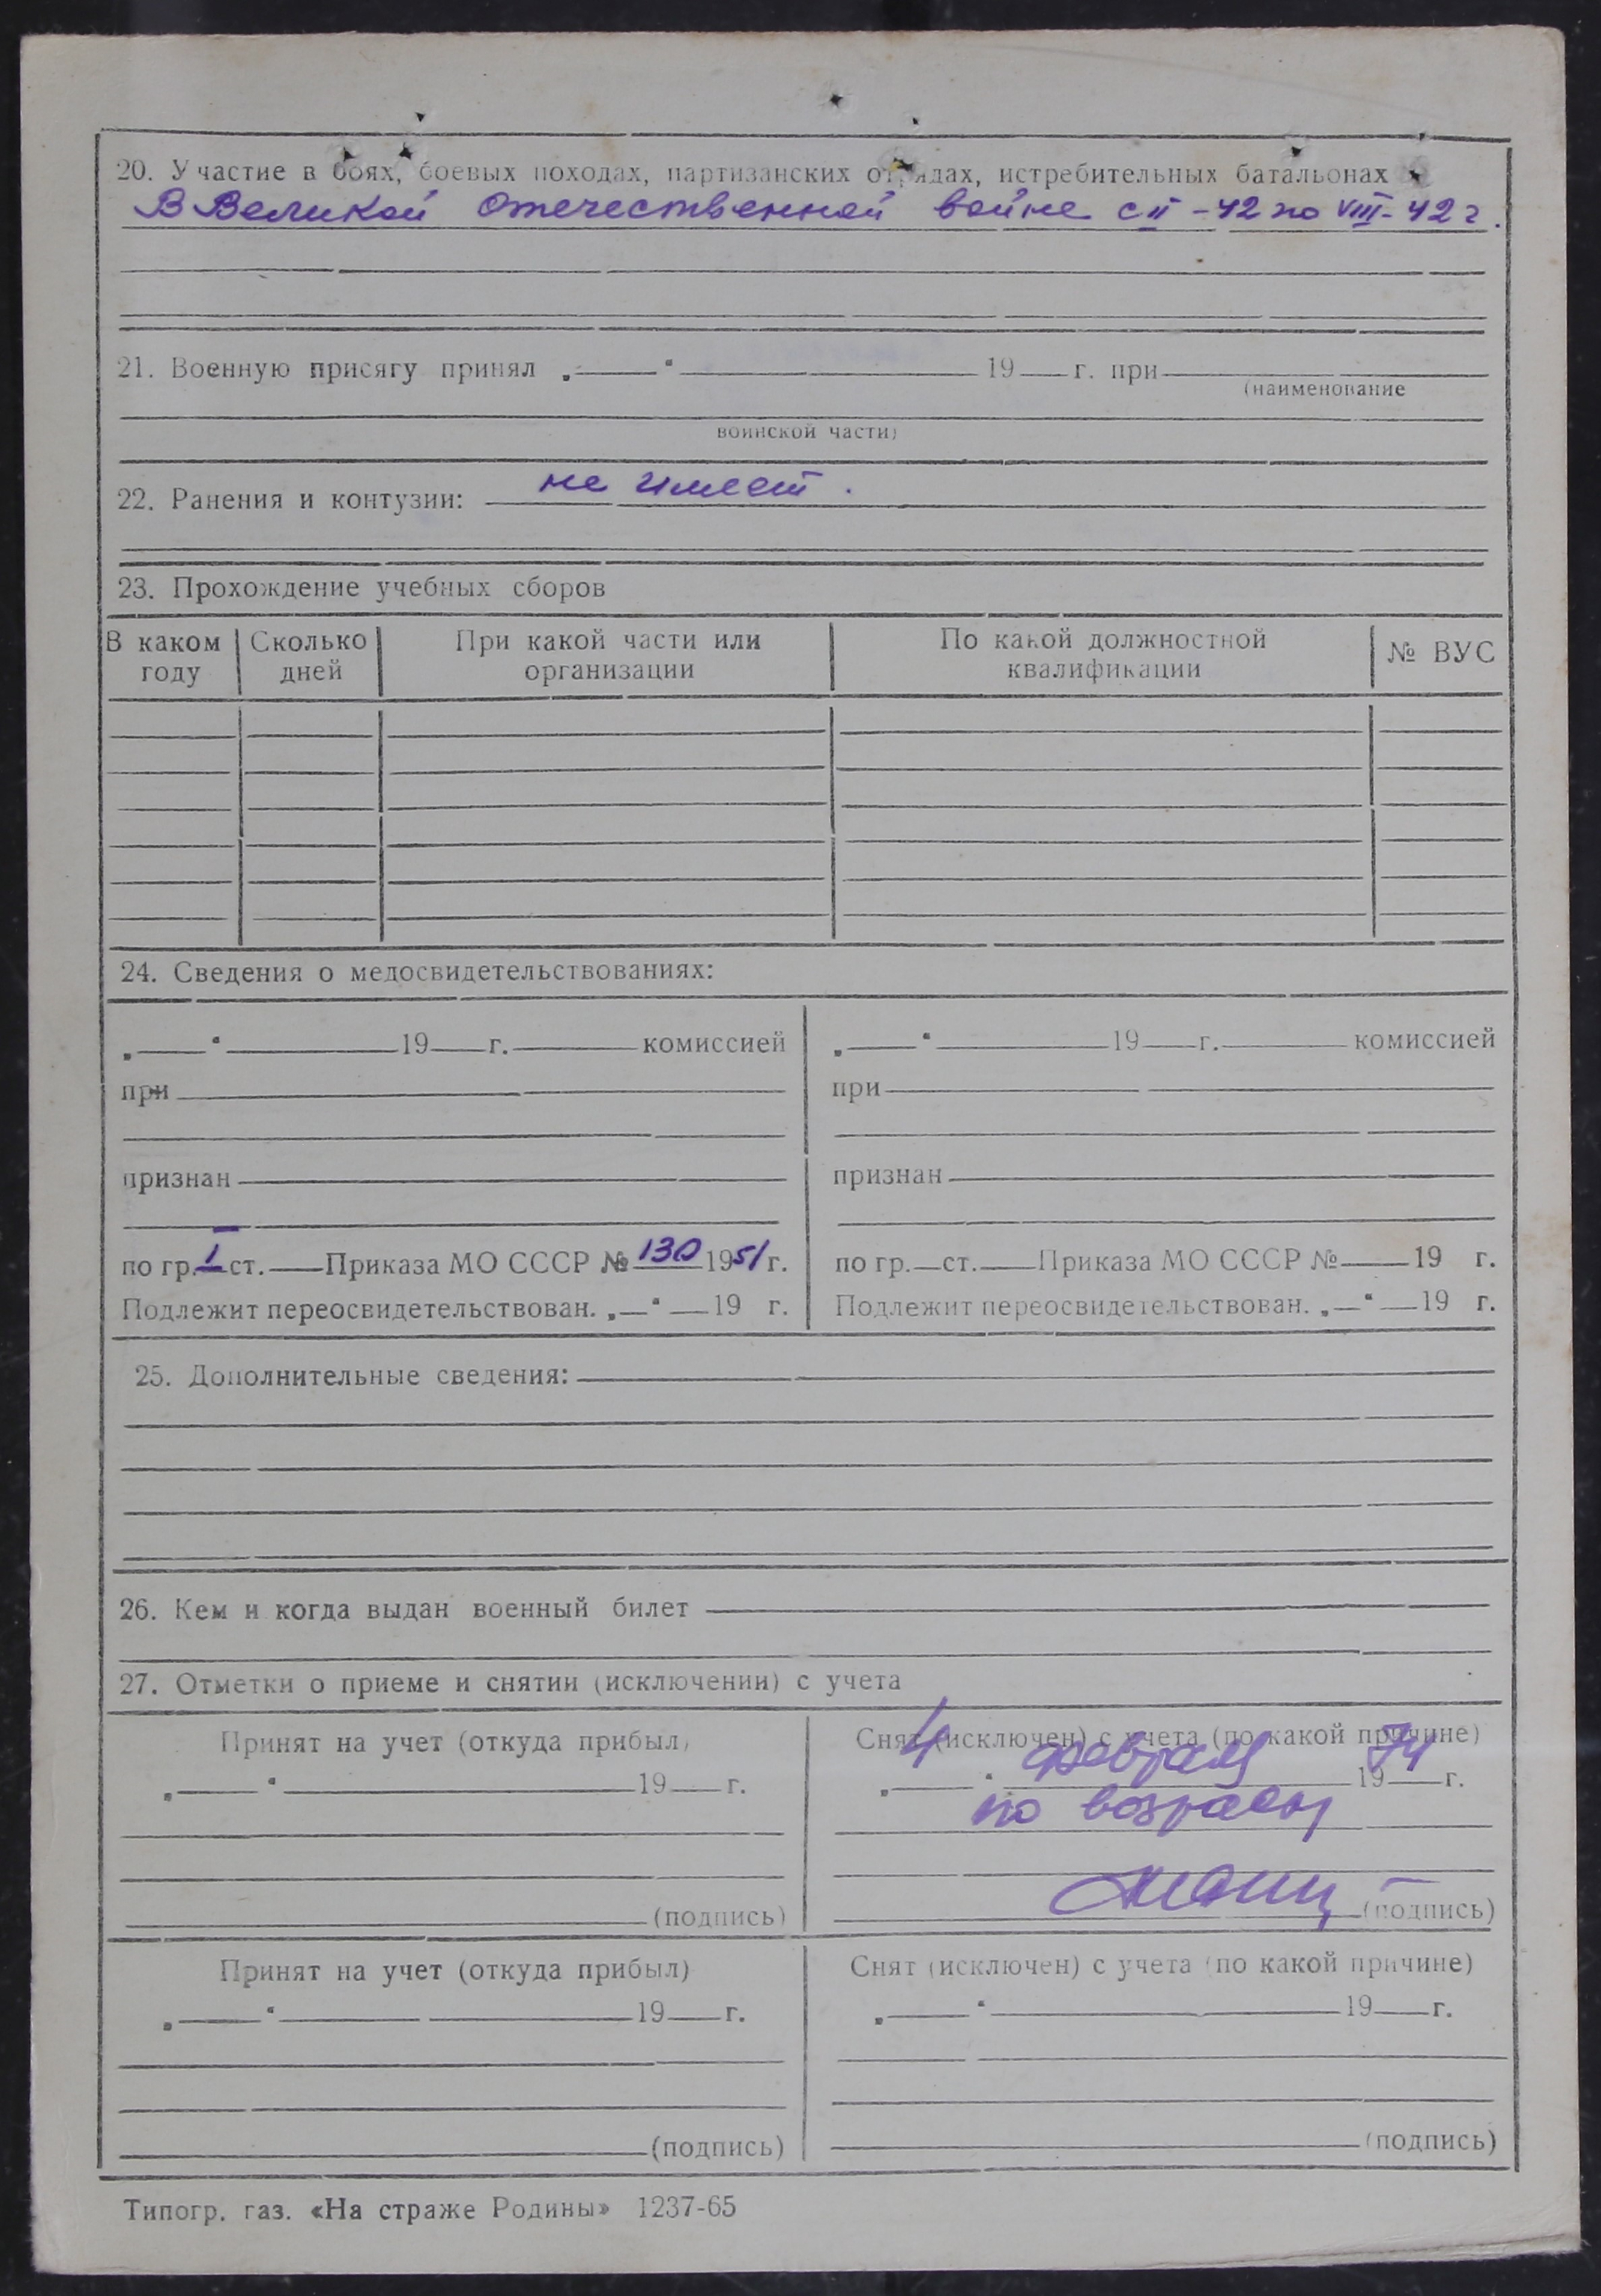 20. Участие в боях, боевых походах, партизанских отрядах, истребительных батальонах
В Великой Отечественной войне с II-42 по VIII-42 г.
21. Военную присягу принял „ “ 19 г. при
(наименование
воинской части)
22. Ранения и контузии: не имеет.
23. Прохождение учебных сборов
В каком году Сколько дней При какой части или организации По какой должностной квалификации № ВУС
24. Сведения о медосвидетельствованиях:
„ “ 19 г. комиссией
при
признан
по гр. I ст. Приказа МО СССР № 130 1951 г.
Подлежит переосвидетельствован. „ “ 19 г.
„ “ 19 г. комиссией
при
признан
по гр. ст. Приказа МО СССР № 19 г.
Подлежит переосвидетельствован. „ “ 19 г.
25. Дополнительные сведения:
26. Кем и когда выдан военный билет
27. Отметки о приеме и снятии (исключении) с учета
Принят на учет (откуда прибыл)
„ “ 19 г.
(подпись)
Снят (исключен) с учета (по какой причине)
„4“ февраля 1974 г.
по возрасту
(подпись)
Принят на учет (откуда прибыл)
„ “ 19 г.
(подпись)
Снят (исключен) с учета (по какой причине)
„ “ 19 г.
(подпись)
Типогр. газ. «На страже Родины» 1237-65